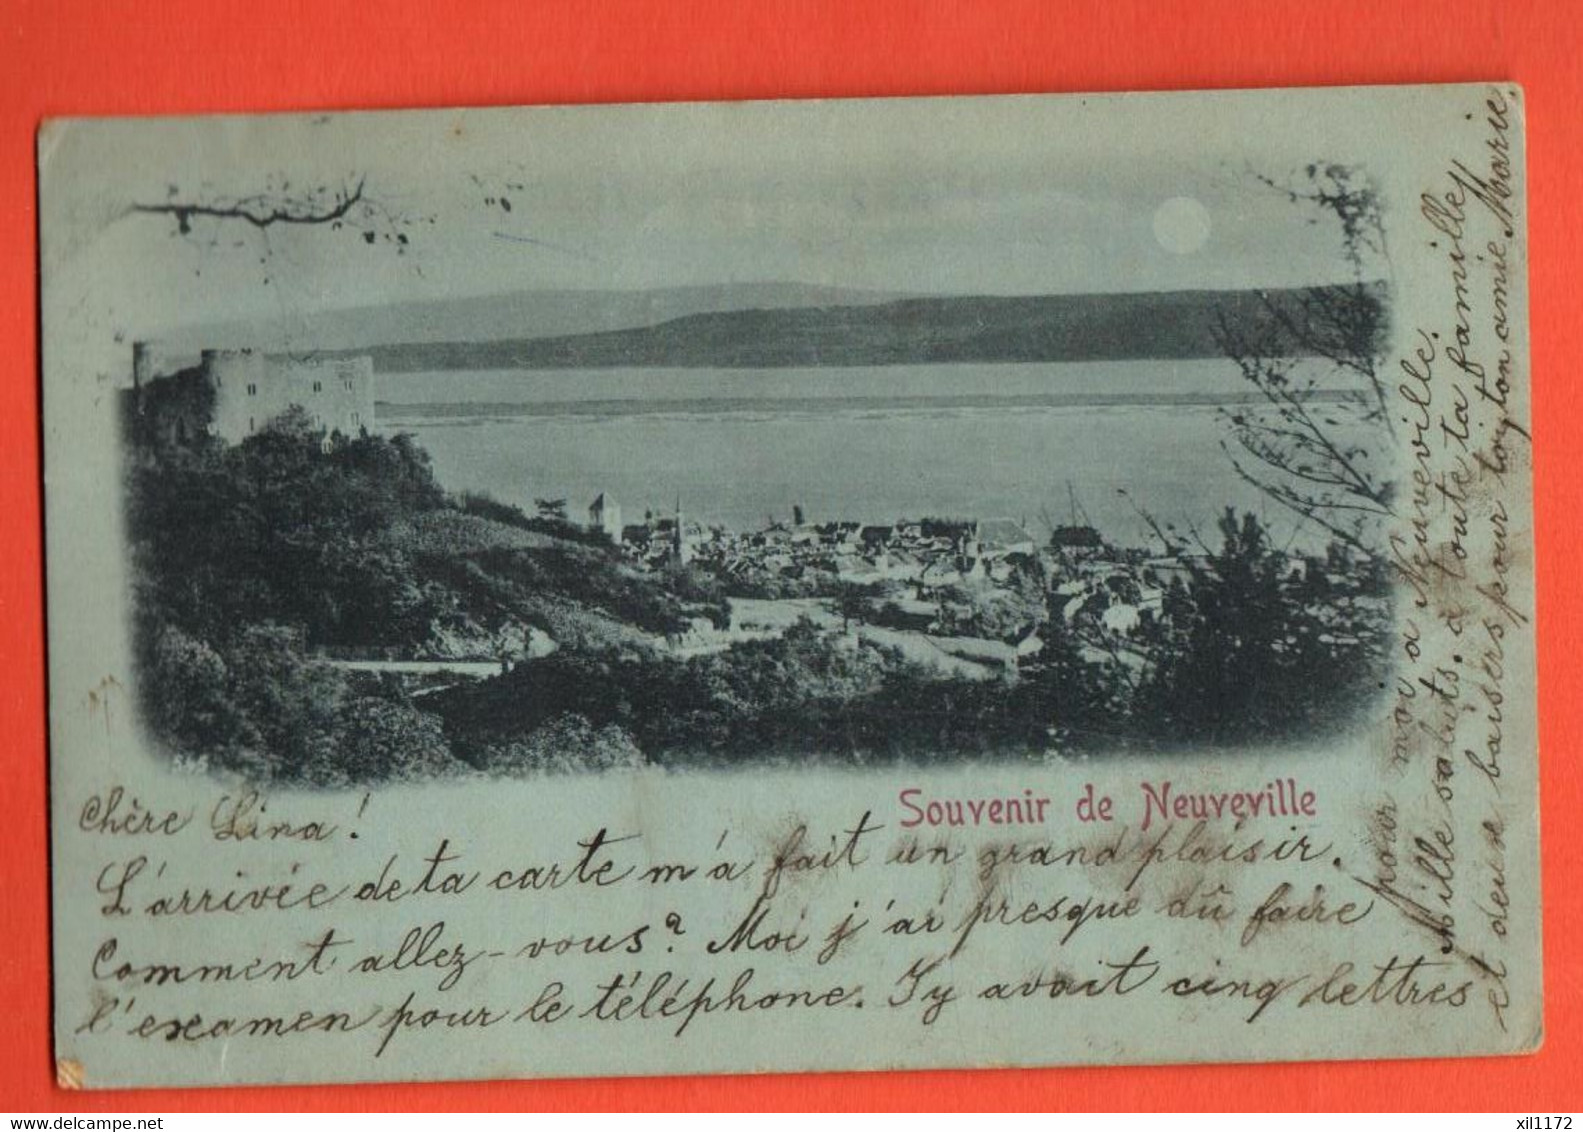 Souvenir de Neuveville
Chère Lina!
L'arrivée de ta carte m'a fait un grand plaisir.
Comment allez-vous? Moi j'ai presque dû faire
l'examen pour le téléphone. Iy avait cinq lettres
pour moi a Neuveville.
Mille saluts. à toute ta famille
et deux baisers pour toi, ton amie Marie.
delcampe.net
xil1172